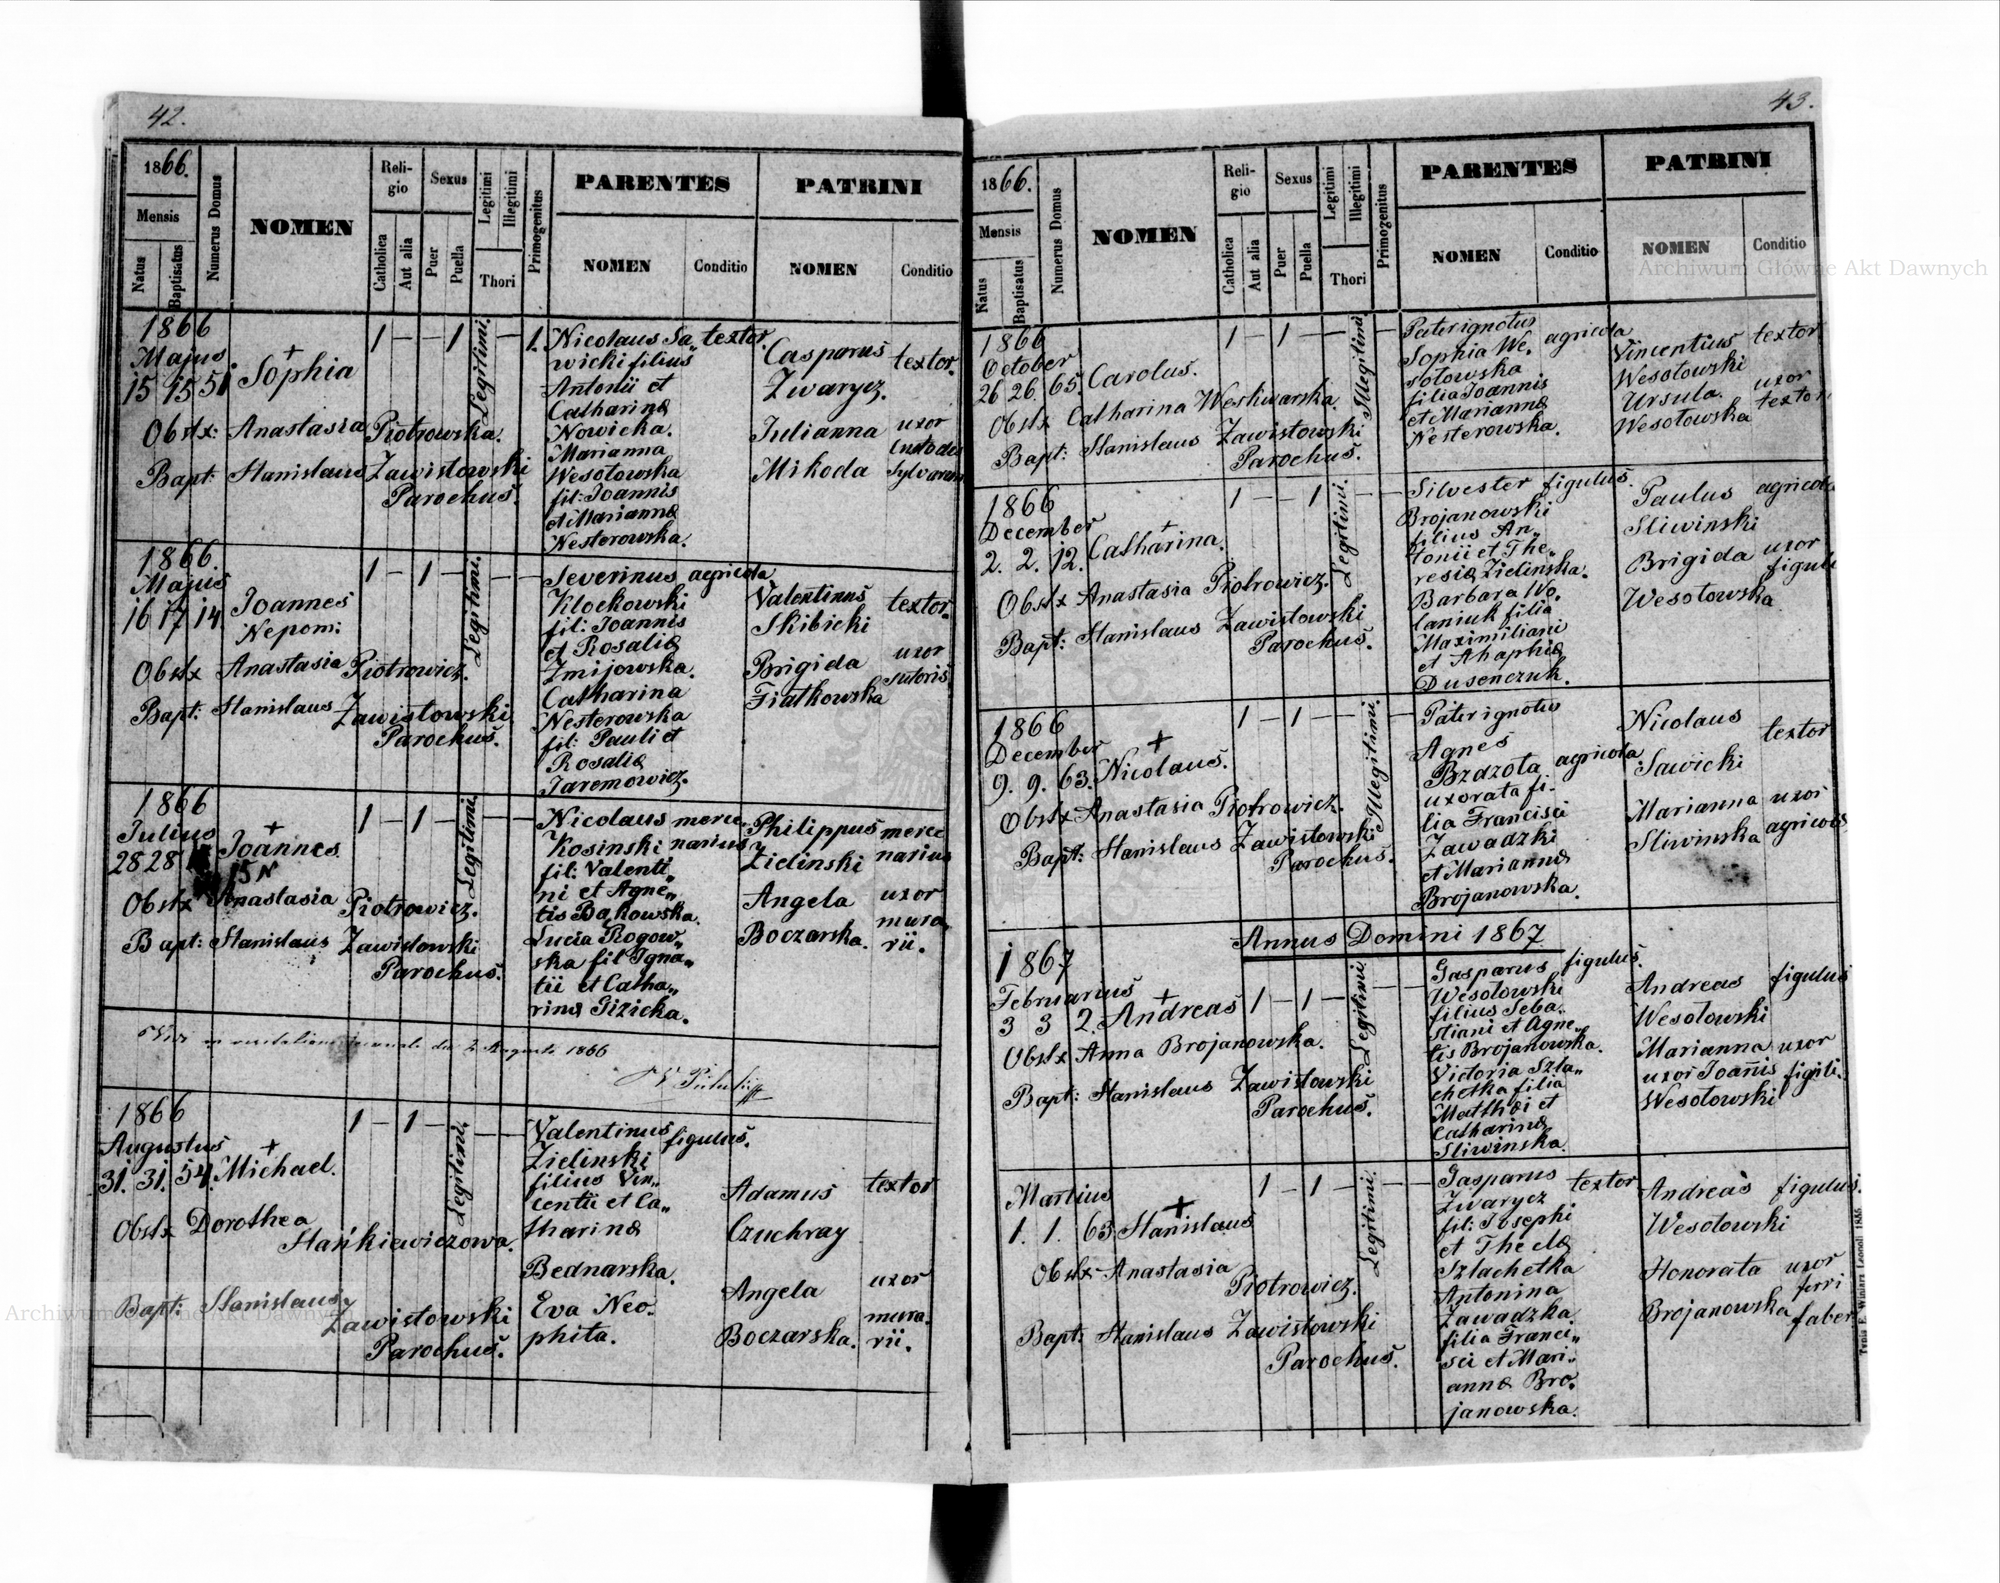 42.
1866.
Mensis
Natus
Baptisatus
Numerus Domus
NOMEN
Religio
Catholica
Aut alia
Sexus
Puer
Puella
Legitimi
Illegitimi
Thori
Primogenitus
PARENTES
NOMEN
Conditio
PATRINI
NOMEN
Conditio
1866
Majus
15 15 51 Sophia
Obstx: Anastasia Piotrowska.
Bapt: Stanislaus Zawistowski
Parochus.
1 — — 1 Legitimi. — 1.
Nicolaus Sa„ textor.
wicki filius
Antonii et
Catharinæ
Nowicka.
Marianna
Wesołowska
fil: Joannis
et Mariannæ
Nesterowska.
Casparus textor.
Zwarycz.
Julianna uxor
Custodis
Mikoda Sylvarum
1866.
Majus
16 17 14 Joannes
Nepom:
Obstx Anastasia Piotrowicz.
Bapt: Stanislaus Zawistowski
Parochus.
1 — 1 — Legitimi. — —
Severinus agricola
Klockowski
fil: Joannis
et Rosaliæ
Zmijowska.
Catharina
Nesterowska
fil: Pauli et
Rosaliæ
Jaremowicz.
Valentinus textor.
Skibicki
Brigida uxor
Fiatkowska sutoris
1866
Julius
28 28 Joannes.
15 N
Obstx Anastasia Piotrowicz.
Bapt: Stanislaus Zawistowski
Parochus.
1 — 1 — Legitimi. — —
Nicolaus merce„
Kosinski narius
fil: Valenti„
ni et Agne„
tis Bąkowska.
Lucia Rogow„
ska fil Igna„
tii et Catha„
rinæ Gizicka.
Philippus merce
Zielinski narius
Angela uxor
Boczarska. mura
rii.
Augusti 1866
1866
Augustus
31. 31. 54. Michael.
Obstx Dorothea
Stańkiewiczowa.
Bapt: Stanislaus
Zawistowski
Parochus.
1 — 1 — Legitimi. — —
Valentinus figulus.
Zielinski
filius Vin„
centii et Ca„
tharinæ
Bednarska.
Eva Neo„
phita.
Adamus textor
Czuchray
Angela uxor
Boczarska. mura„
rii.
43.
1866.
Mensis
Natus
Baptisatus
Numerus Domus
NOMEN
Religio
Catholica
Aut alia
Sexus
Puer
Puella
Legitimi
Illegitimi
Thori
Primogenitus
PARENTES
NOMEN
Conditio
PATRINI
NOMEN
Conditio
1866
October
26 26. 65. Carolus.
Obstx Catharina Weshwarska.
Bapt: Stanislaus Zawistowski
Parochus.
1 — 1 — Illegitimi —
Pater ignotus
Sophia We„ agricola
sołowska
filia Joannis
et Mariannæ
Nesterowska.
Vincentius textor
Wesołowski
Ursula uxor
Wesołowska textor
1866
December
2. 2. 12. Catharina.
Obstx Anastasia Piotrowicz.
Bapt: Stanislaus Zawistowski
Parochus.
1 — — 1 Legitimi. — —
Silvester figulus.
Brojanowski
filius An„
tonii et The„
resiæ Zielinska.
Barbara Wo„
laniuk filia
Maximiliani
et Ahaphiæ
Dusenczuk.
Paulus agricola
Sliwinski
Brigida uxor
figuli
Wesołowska
1866
December
9. 9. 63. Nicolaus.
Obstx Anastasia Piotrowicz.
Bapt: Stanislaus Zawistowski
Parochus.
1 — 1 — — Illegitimi. —
Pater ignotus
Agnes
Bzdzota agricola
uxorata fi„
lia Francisci
Zawadzki
et Mariannæ
Brojanowska.
Nicolaus textor
Sawicki
Marianna uxor
Sliwinska agricolæ
Annus Domini 1867
1867
Februarius
3 3 2. Andreas
Obstx Anna Brojanowska.
Bapt: Stanislaus Zawistowski
Parochus.
1 — 1 — Legitimi — —
Gasparus figulus.
Wesołowski
filius Seba„
stiani et Agne„
tis Brojanowska.
Victoria Szla„
chetka filia
Matthæi et
Catharinæ
Sliwinska.
Andreas figulus
Wesołowski
Marianna uxor
uxor Joanis figuli.
Wesołowski
Martius
1. 1. 63. Stanislaus
Obstx Anastasia
Piotrowicz.
Bapt: Stanislaus Zawistowski
Parochus.
1 — 1 — Legitimi. — —
Gasparus textor
Zwarycz
fil: Josephi
et Theclæ
Szlachetka
Antonina
Zawadzka.
filia Franci„
sci et Mari„
annæ Bro„
janowska.
Andreas figulus.
Wesołowski
Honorata uxor
ferri
Brojanowska faber
Typis E. Winiarz Leopoli 1855.
Archiwum Główne Akt Dawnych
Archiwum Główne Akt Dawnych